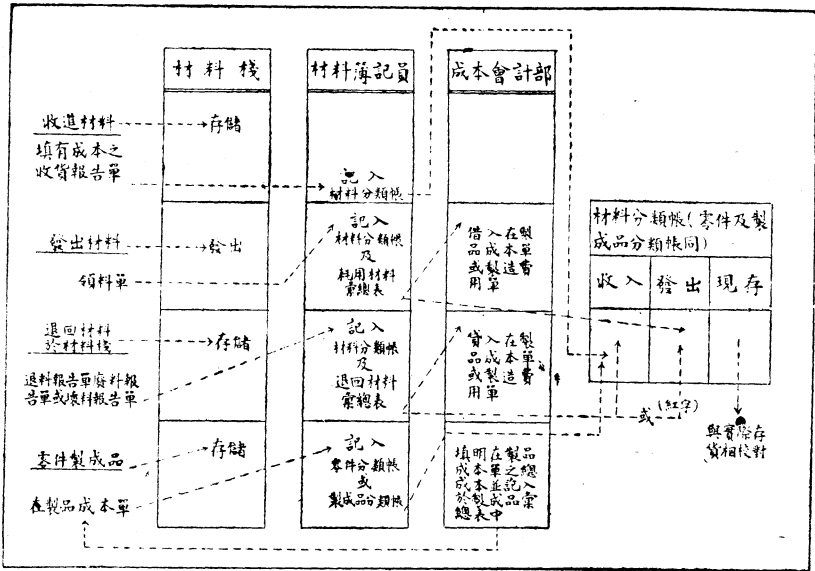 材料棧
材料簿記員
成本會計部
收進材料
存儲
填有成本之
收貨報告單
記入
材料分類帳
發出材料
發出
領料單
記入
材料分類帳
及
耗用材料
彙總表
借入在製
品成本單
或製造費
用單
退回材料
於材料棧
存儲
退料報告單廢料報
告單或壞料報告單
記入
材料分類帳
及
退回材料
彙總表
貸入在製
品成本單
或製造費
用單
零件製成品
存儲
在製品成本單
記入
零件分類帳
或
製成品分類帳
填明在製品
成本單之總
成本並記入
於製成品彙
總表中
材料分類帳(零件及製
成品分類帳同)
收入
發出
現存
或
(紅字)
與實際存
貨相校對